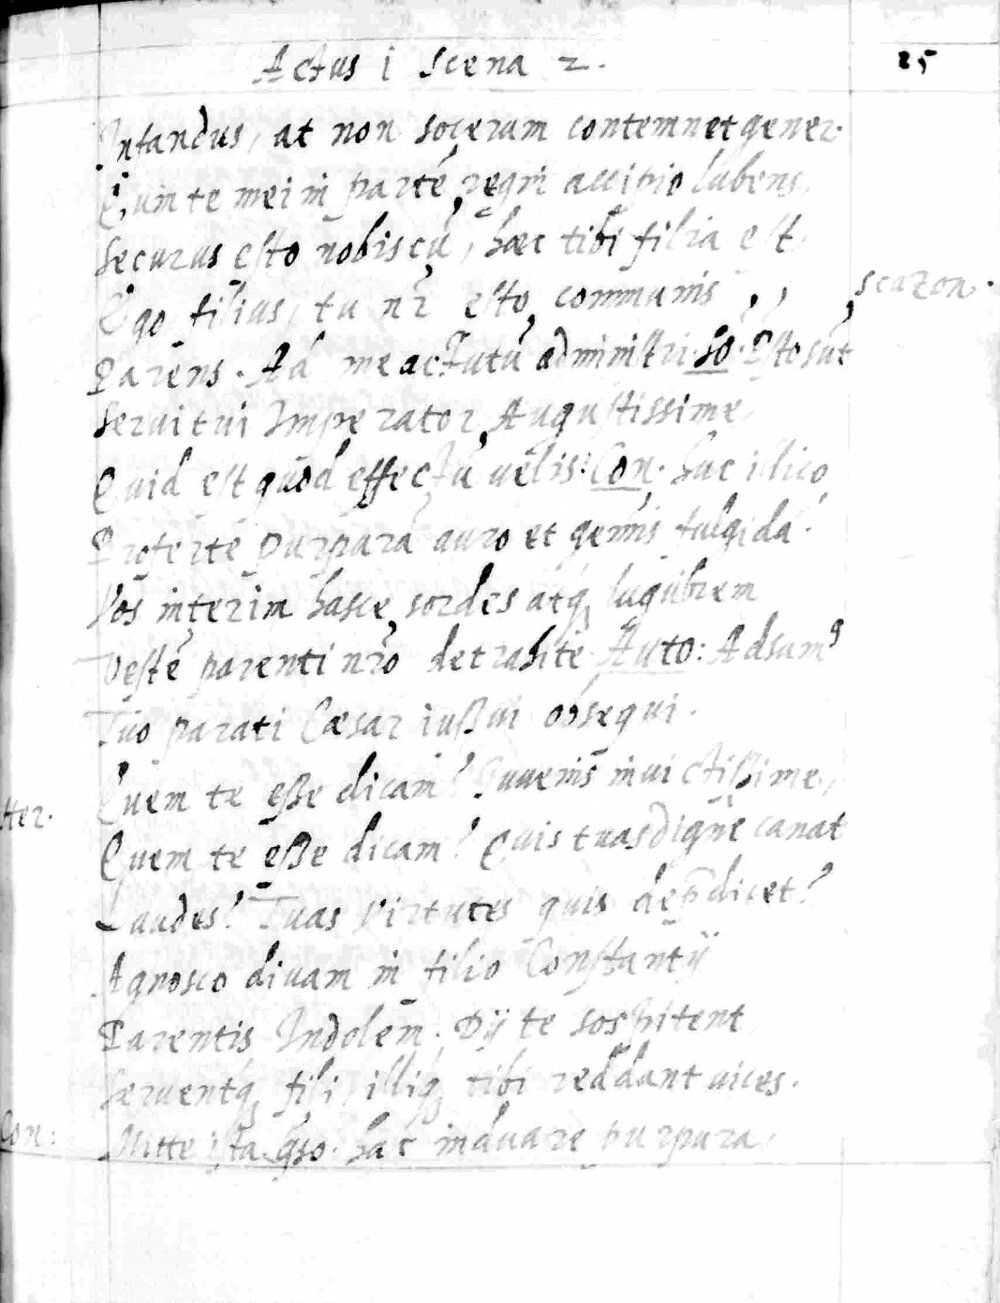 Actus i Scena 2. 25
Infandus, at non socerum contemnet gener.
Quin te mei in partē regni accipio lubens,
Securus esto nobiscū, haec tibi filia est,
Ego filius, tu nr̄ esto communis , , , scazon.
Parens. Ad me actutū administri. So. Præsto sūt
Servi tui Imperator Augustissime
Quid est quod effectū velis. Con. huc illico
Proferte purpurā auro et gem̄is fulgidā.
Vos interim hasce sordes atq; lugubrem
Vestē parenti nr̄o detrahite. Auto: Adsumꝰ
Tuo parati Cæsar iußui obsequi.
Her. Quem te eße dicam? Juvenis invictißime,
Quem te eße dicam? Quis tuas digne canat
Laudes? Tuas virtutes quis dep̄dicet?
Agnosco divam in filio Constantij
Parentis Indolem. Dij te sospitent
Serventq; fili, illiq; tibi reddant vices.
Con: Mitte ista q̄so. hac induare purpura,